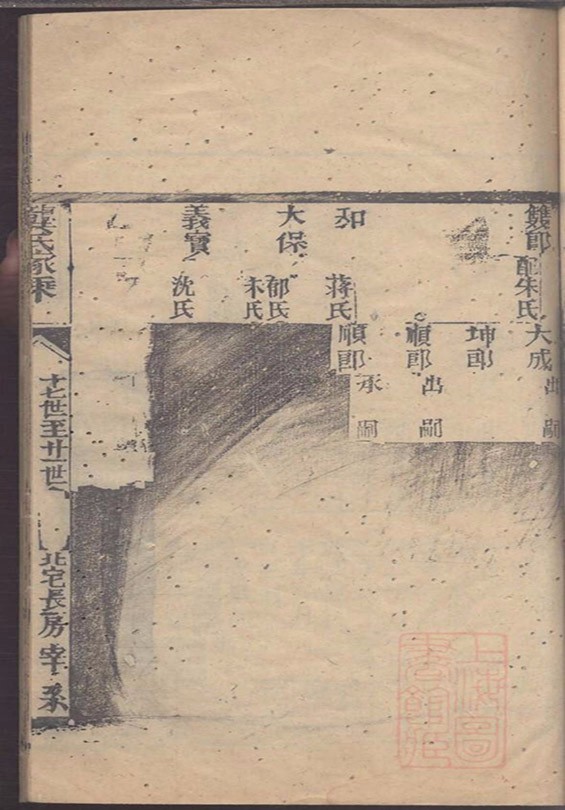 雙郎
配朱氏
大成
出嗣
坤郎
順郎
出嗣
和
蔣氏
順郎
承嗣
大保
郁氏
朱氏
義寶
沈氏
龔氏家乘
十七世至廿一世
北宅長房宰系
上海圖書館藏